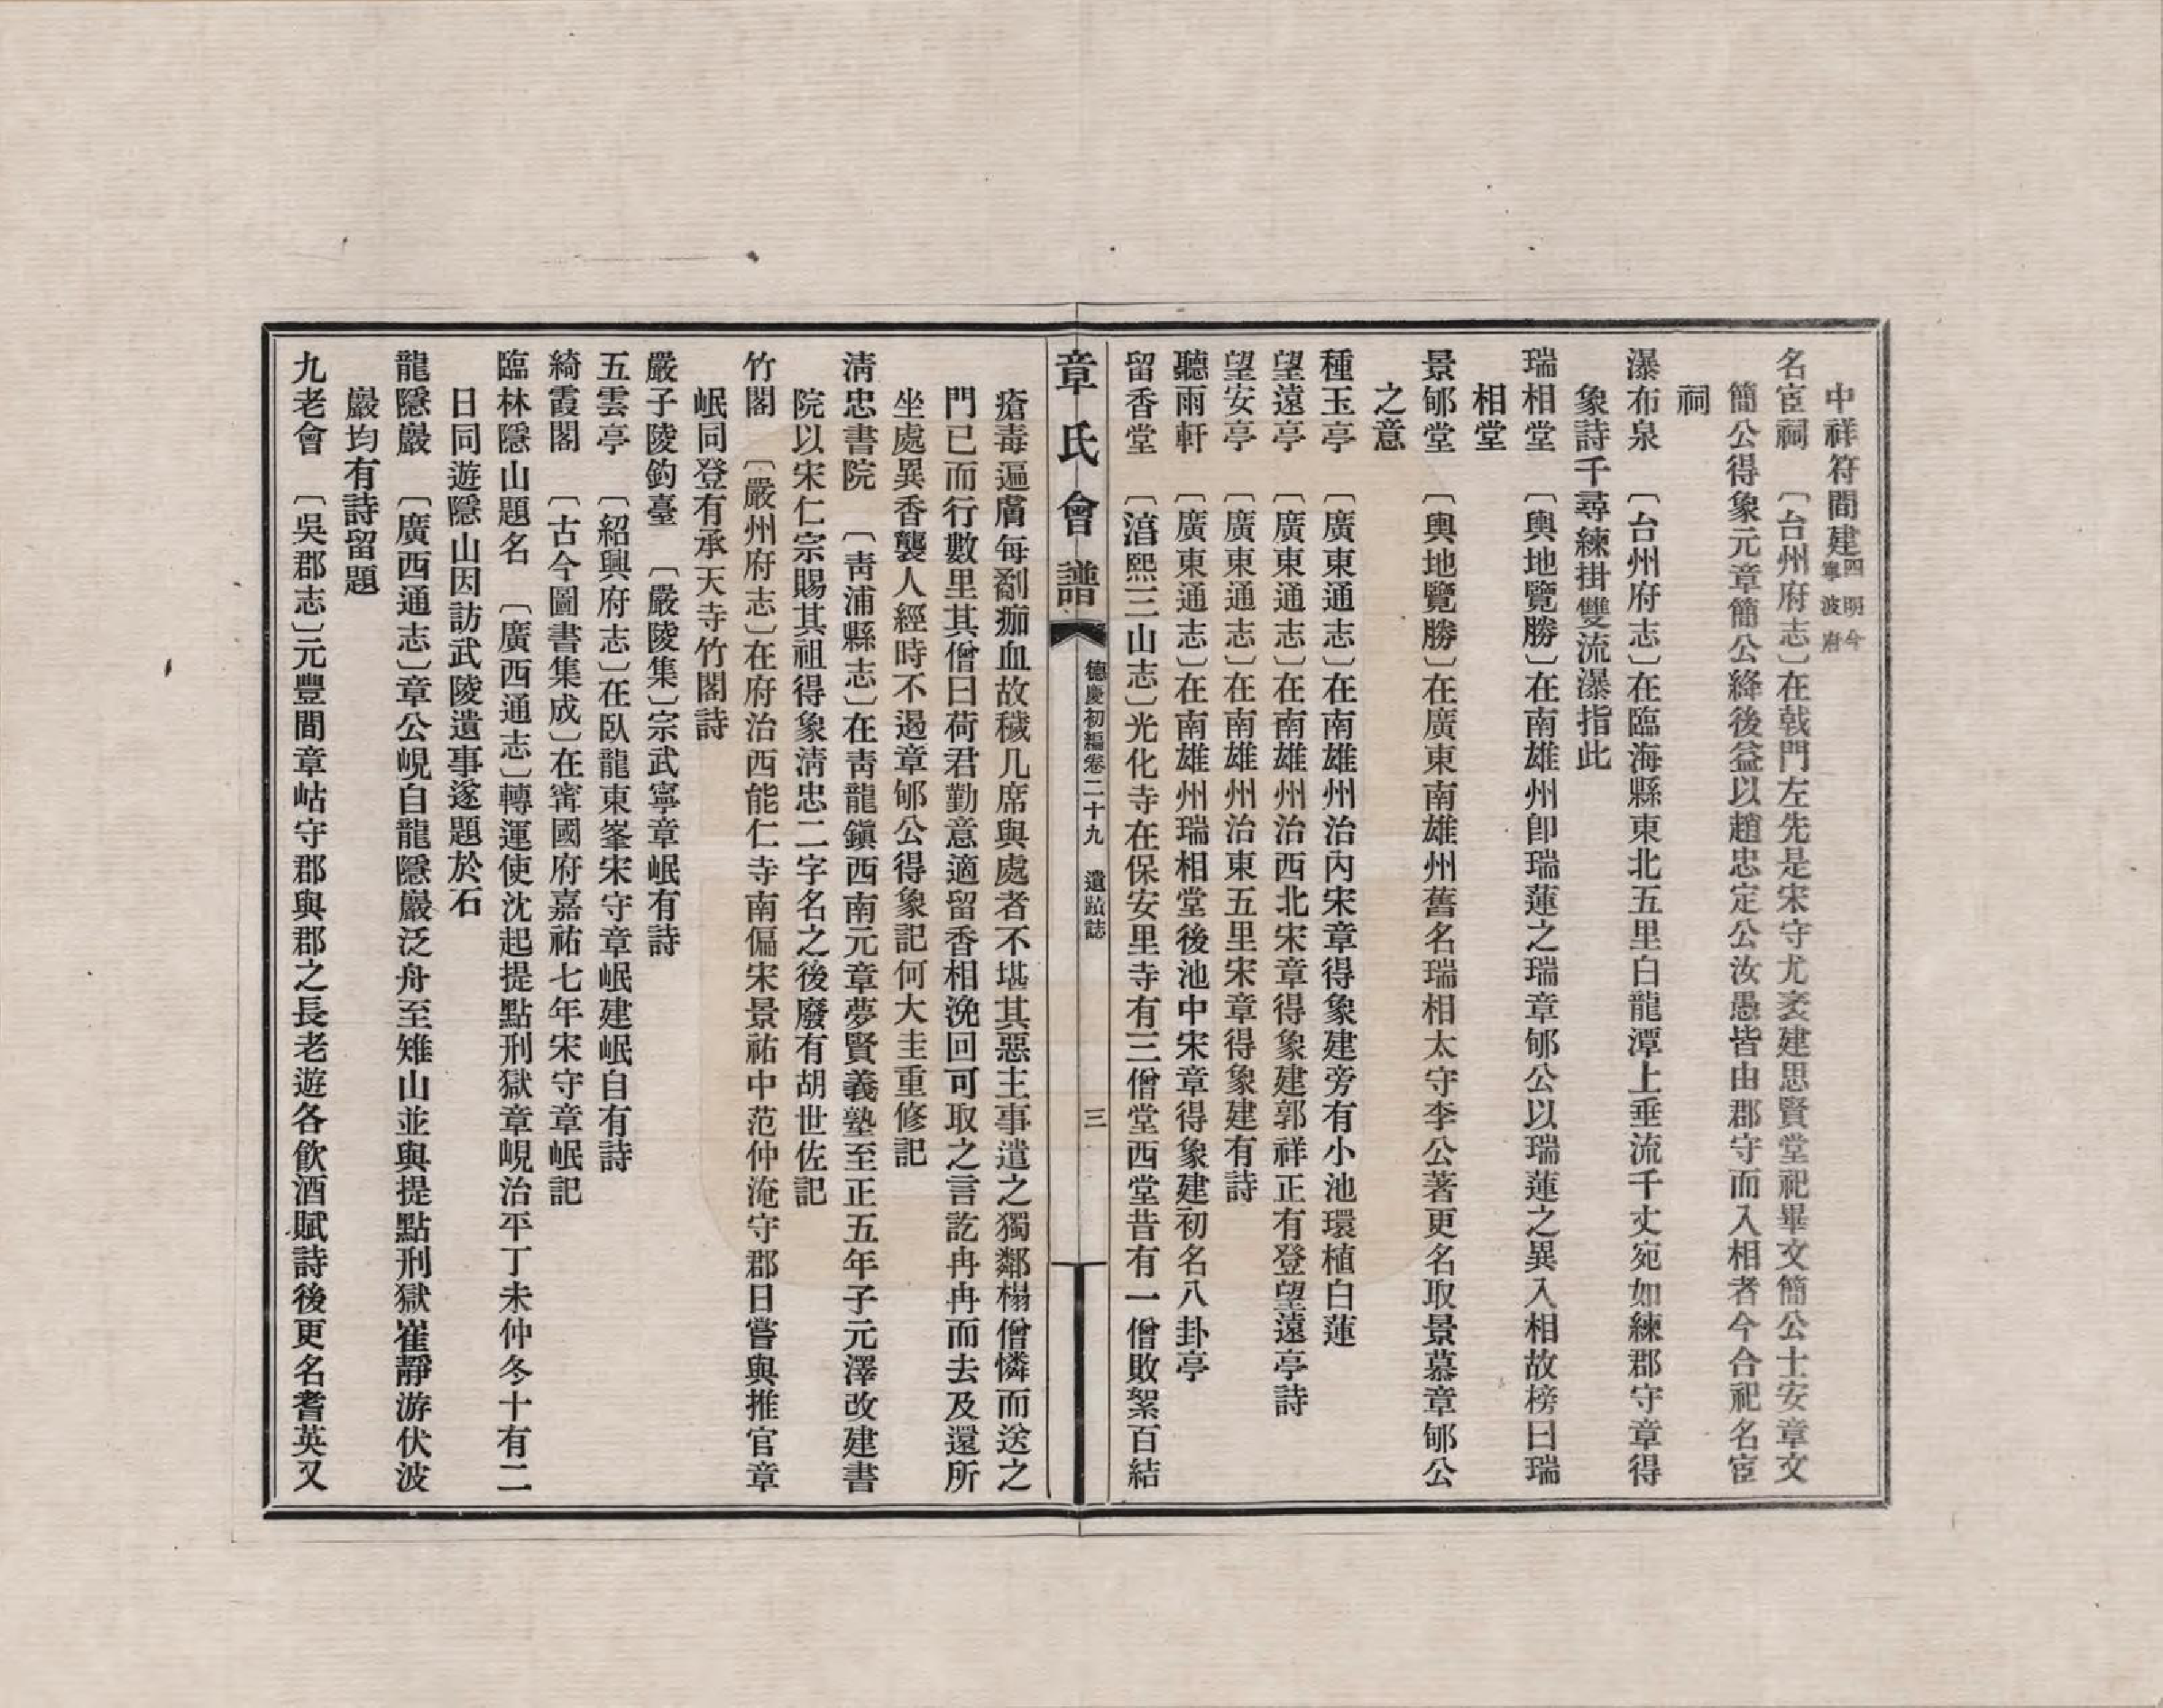 中祥符間建四明今寧波府
名宦祠　〔台州府志〕在戟門左先是宋守尤袤建思賢堂祀畢文簡公士安章文
簡公得象元章簡公絳後益以趙忠定公汝愚皆由郡守而入相者今合祀名宦
祠
瀑布泉　〔台州府志〕在臨海縣東北五里白龍潭上垂流千丈宛如練郡守章得
象詩千尋練掛雙流瀑指此
瑞相堂　〔輿地覽勝〕在南雄州卽瑞蓮之瑞章郇公以瑞蓮之異入相故榜曰瑞
相堂
景郇堂　〔輿地覽勝〕在廣東南雄州舊名瑞相太守李公著更名取景慕章郇公
之意
種玉亭　〔廣東通志〕在南雄州治內宋章得象建旁有小池環植白蓮
望遠亭　〔廣東通志〕在南雄州治西北宋章得象建郭祥正有登望遠亭詩
望安亭　〔廣東通志〕在南雄州治東五里宋章得象建有詩
聽雨軒　〔廣東通志〕在南雄州瑞相堂後池中宋章得象建初名八卦亭
留香堂　〔淳熙三山志〕光化寺在保安里寺有三僧堂西堂昔有一僧敗絮百結
章氏會譜　德慶初編卷二十九　遺蹟誌　三
瘡毒遍膚每剷痂血故穢几席與處者不堪其惡主事遣之獨鄰榻僧憐而送之
門已而行數里其僧曰荷君勤意適留香相浼回可取之言訖冉冉而去及還所
坐處異香襲人經時不遏章郇公得象記何大圭重修記
淸忠書院　〔靑浦縣志〕在靑龍鎭西南元章夢賢義塾至正五年子元澤改建書
院以宋仁宗賜其祖得象淸忠二字名之後廢有胡世佐記
竹閣　〔嚴州府志〕在府治西能仁寺南偏宋景祐中范仲淹守郡日嘗與推官章
岷同登有承天寺竹閣詩
嚴子陵釣臺　〔嚴陵集〕宗武寧章岷有詩
五雲亭　〔紹興府志〕在臥龍東峯宋守章岷建岷自有詩
綺霞閣　〔古今圖書集成〕在寧國府嘉祐七年宋守章岷記
臨林隱山題名　〔廣西通志〕轉運使沈起提點刑獄章峴治平丁未仲冬十有二
日同遊隱山因訪武陵遺事遂題於石
龍隱巖　〔廣西通志〕章公峴自龍隱巖泛舟至雉山並與提點刑獄崔靜游伏波
巖均有詩留題
九老會　〔吳郡志〕元豐間章岵守郡與郡之長老遊各飮酒賦詩後更名耆英又